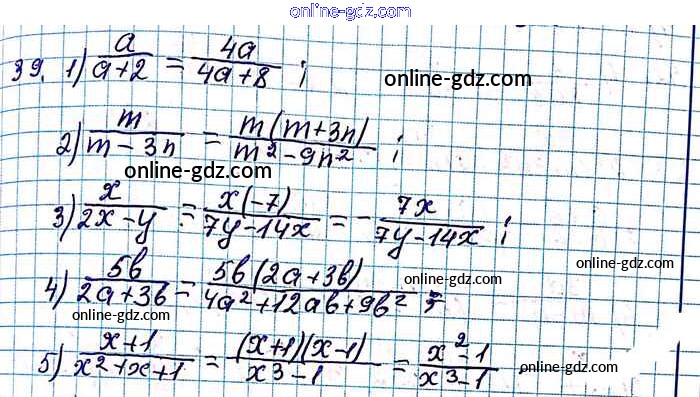 online-gdz.com
39. 1) a/(a+2) = 4a/(4a+8) ;
online-gdz.com
2) m/(m-3n) = m(m+3n)/(m²-9n²) ;
online-gdz.com
3) x/(2x-y) = x(-7)/(7y-14x) = -7x/(7y-14x) ;
online-gdz.com
4) 5b/(2a+3b) = 5b(2a+3b)/(4a²+12ab+9b²) ;
online-gdz.com
online-gdz.com
5) (x+1)/(x²+x+1) = (x+1)(x-1)/(x³-1) = (x²-1)/(x³-1) .
online-gdz.com